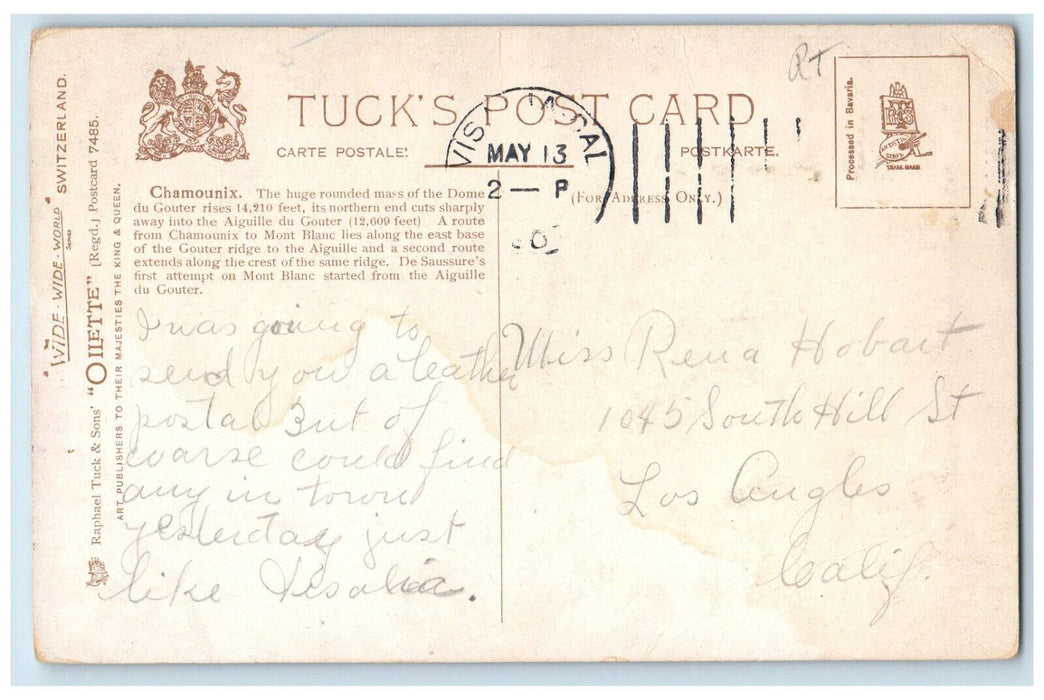 TUCK'S POST CARD
CARTE POSTALE.
POSTKARTE.
(FOR ADDRESS ONLY.)
RT
Processed in Bavaria.
TRADE MARK.
VIS CAL
MAY 13
2 — P
"WIDE-WIDE-WORLD" SWITZERLAND.
SERIES
Raphael Tuck & Sons' "OILETTE" (Regd.) Postcard 7485.
ART PUBLISHERS TO THEIR MAJESTIES THE KING & QUEEN.
Chamounix. The huge rounded mass of the Dome
du Gouter rises 14,210 feet, its northern end cuts sharply
away into the Aiguille du Gouter (12,609 feet) A route
from Chamounix to Mont Blanc lies along the east base
of the Gouter ridge to the Aiguille and a second route
extends along the crest of the same ridge. De Saussure's
first attempt on Mont Blanc started from the Aiguille
du Gouter.
I was going to
send you a leather
postal But of
coarse could find
any in town
yesterday just
like Visalia.
Miss Rena Hobart
1045 South Hill St
Los Angles
Calif.